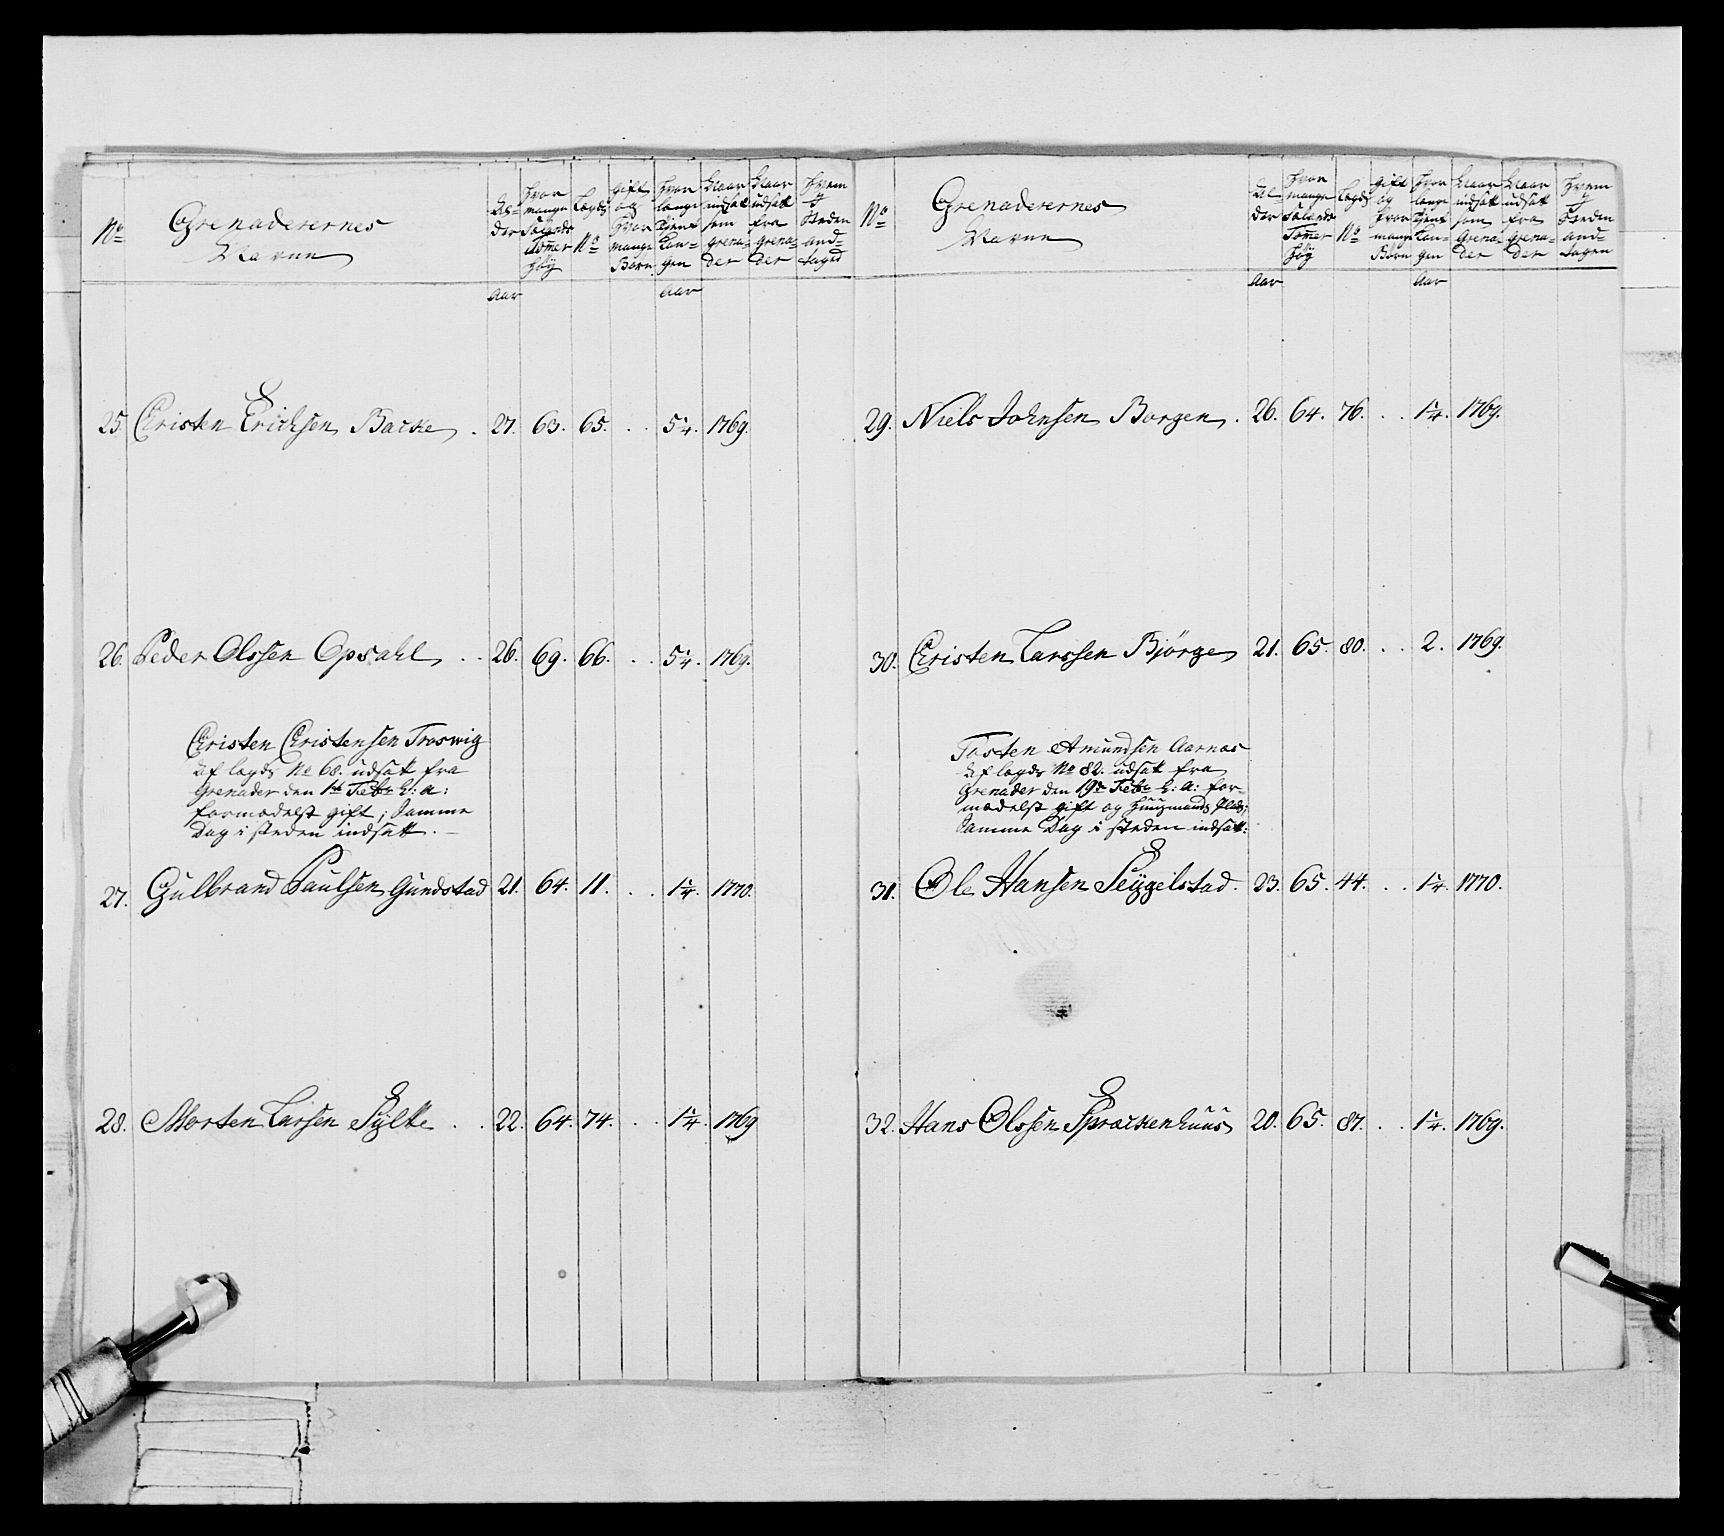 No
Grenaderernes
Navne
Al-
der
Hvor
mange
Sålands
Tomer
høÿ
Lægds
No
Gift
og
hvor
mange
Børn
Hvor
lange
tient
Lan-
gen
Naar
indsatt
som
Grena-
der
Naar
udsatt
fra
Grena-
der
Hvem
ÿ
Steden
and-
taged
Aar
Aar
25. Christen Erichsen Backe . 27. 63. 65. . . 5¼. 1769.
26. Peder Olssen Opsahl . . 26. 69. 66. . . 5¼. 1769.
Christen Christensen Troswig
Af lægds No 68. udsatt fra
Grenader den 1te Febr h: a:
formedelst gift; Samme
Dag i steden indsatt. —
27. Gulbrand Paulsen Gundstad 21. 64. 11. . . 1¼. 1770.
28. Morten Larsen Sÿlte . . 22. 64. 74. . . 1¼. 1769
No
Grenaderernes
Navne
Al-
der
Hvor
mange
Sålands
Tomer
høÿ
Lægds
No
Gift
og
hvor
mange
Børn
Hvor
lange
tient
Lan-
gen
Naar
indsatt
som
Grena-
der
Naar
udsatt
fra
Grena-
der
Hvem
ÿ
Steden
and-
tagen
Aar
Aar
29. Niels Johnsen Borgen . 26. 64. 76. . . 1¼. 1769.
30. Christen Larssen Bjørge 21. 65. 80. . . 2. 1769.
Tosten Amundsen Aarnæs
Af lægds No 82. udsatt fra
Grenader den 19de Febr h: a: for-
medelst gift og Huusmands Plads;
Samme Dag i steden indsatt:
31. Ole Hansen Seÿgelstad. 23. 65. 44. . . 1¼. 1770.
32. Hans Olssen Spræckenhuus 20. 65. 87. . . 1¼. 1769.